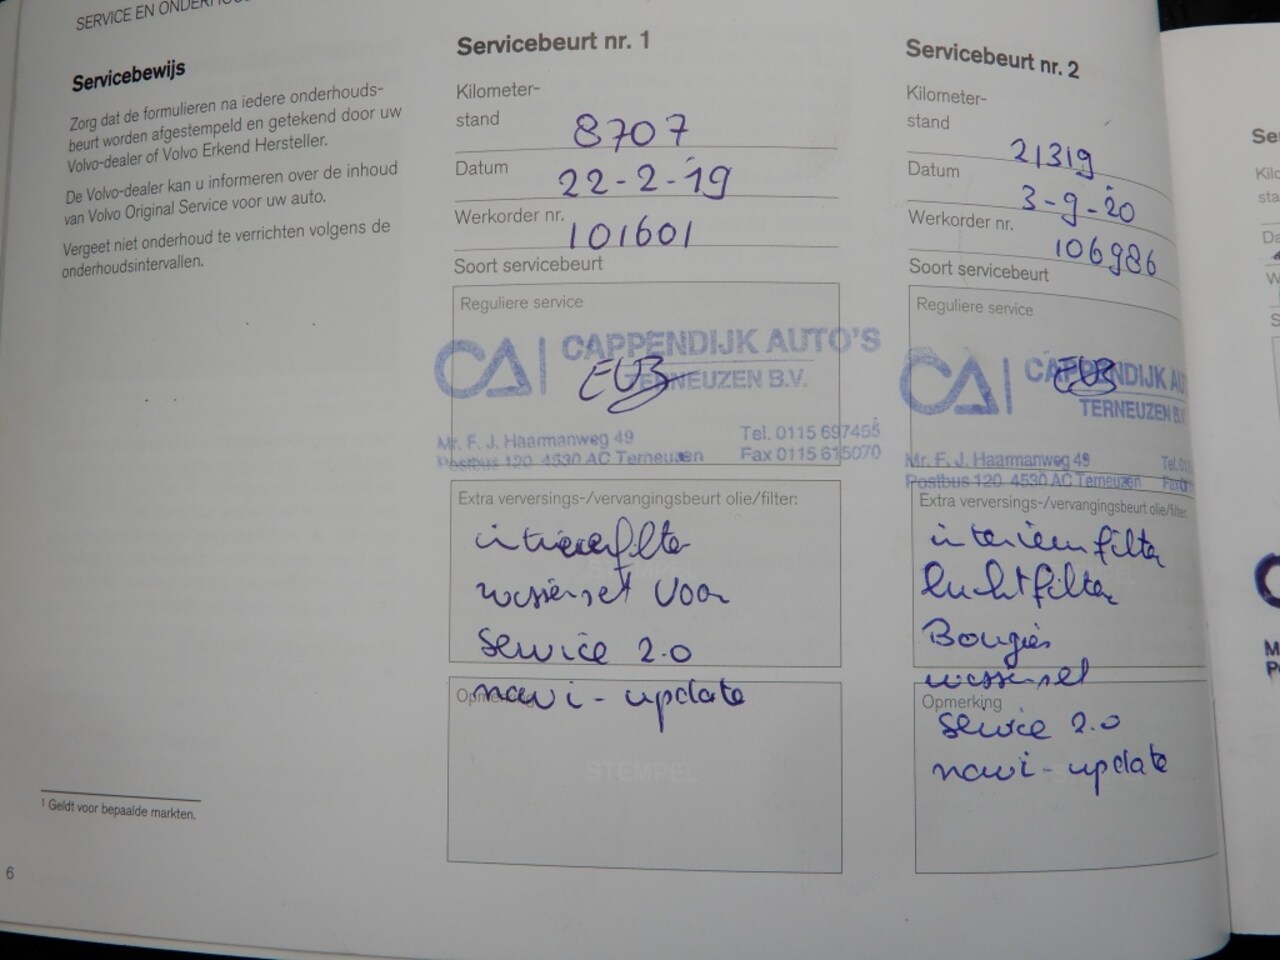 SERVICE EN
Servicebewijs
Zorg dat de formulieren na iedere onderhouds-
beurt worden afgestempeld en getekend door uw
Volvo-dealer of Volvo Erkend Hersteller.
De Volvo-dealer kan u informeren over de inhoud
van Volvo Original Service voor uw auto.
Vergeet niet onderhoud te verrichten volgens de
onderhoudsintervallen.
1 Geldt voor bepaalde markten.
6
Servicebeurt nr. 1
Kilometer-
stand
8707
Datum 22-2-19
Werkorder nr. 101601
Soort servicebeurt
Reguliere service
CA CAPPENDIJK AUTO'S
TERNEUZEN B.V.
Mr. F. J. Haarmanweg 49 Tel. 0115 697455
Postbus 120 4530 AC Terneuzen Fax 0115 615070
Extra verversings-/vervangingsbeurt olie/filter:
voor
service 2.0
Opmerking
navi-update
STEMPEL
Servicebeurt nr. 2
Kilometer-
stand
21319
Datum 3-9-20
Werkorder nr. 106986
Soort servicebeurt
Reguliere service
CA CAPPENDIJK AU
TERNEUZEN B.V
Mr. F. J. Haarmanweg 49 Tel.
Postbus 120 4530 AC Terneuzen Fax
Extra verversings-/vervangingsbeurt olie/filter:
interieurfilter
luchtfilter
Bougies
Opmerking
service 2.0
navi-update